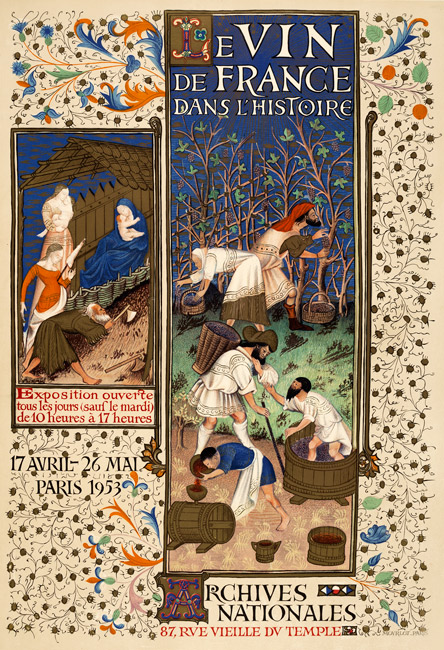 LE VIN
DE FRANCE
DANS L'HISTOIRE
Exposition ouverte
tous les jours (sauf le mardi)
de 10 heures à 17 heures
17 AVRIL - 26 MAI
PARIS 1953
ARCHIVES
NATIONALES
87, RVE VIEILLE DV TEMPLE
MOURLOT, PARIS